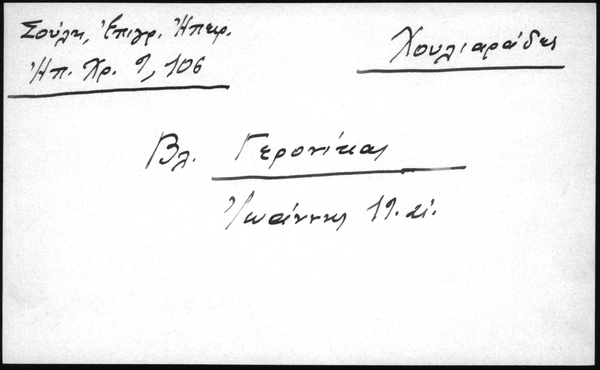 Σούλη, Ἐπιγρ. Ἠπειρ.
Ἠπ. Χρ. 9, 106
Χουλιαράδες
Βλ. Γερονίκας
Ἰωάννης 19. αἰ.